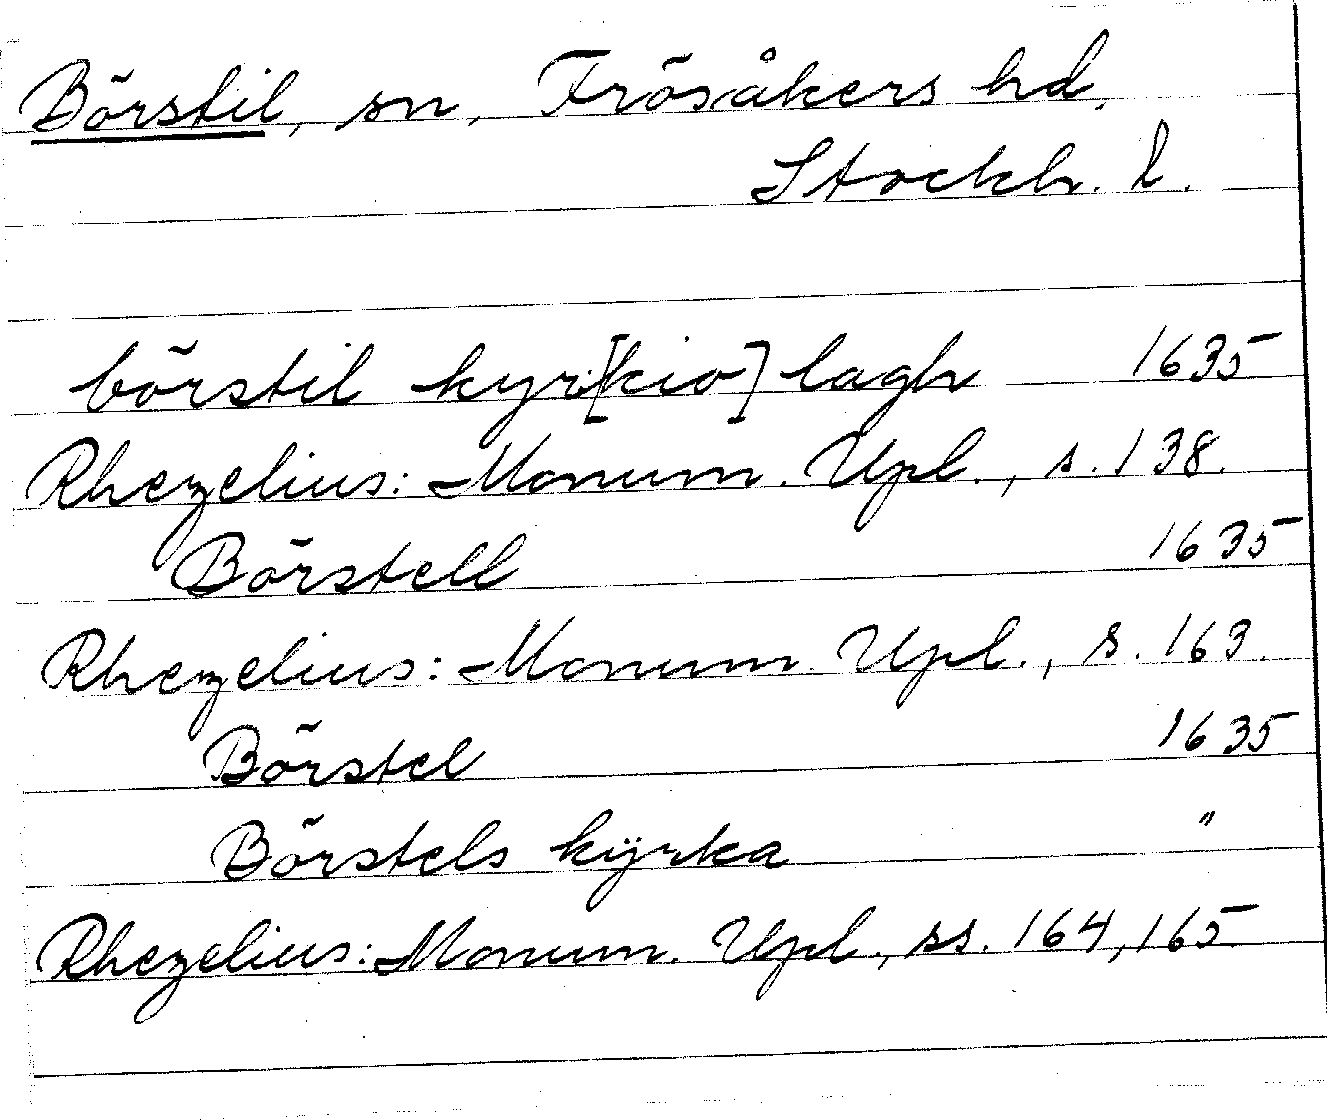 Börstil, sn, Frösåkers hd,
Stockh. l.
börstil kyr[kio] lagh 1635
Rhezelius: Monum. Upl., s. 138.
Börstell 1635
Rhezelius: Monum. Upl., s. 163.
Börstel 1635
Börstels kÿrka "
Rhezelius: Monum. Upl., ss. 164, 165